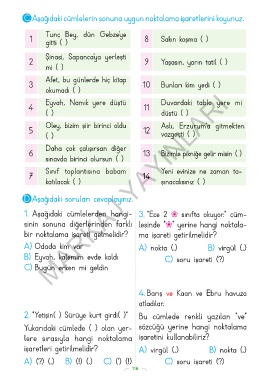 C Aşağıdaki cümlelerin sonuna uygun noktalama işaretlerini koyunuz.
1 Tunç Bey, dün Gebze'ye
gitti ( )
2 Şinasi, Sapanca'ya yerleşti
mi ( )
3 Afet, bu günlerde hiç kitap
okumadı ( )
4 Eyvah, Namık yere düştü
( )
5 Oley, bizim şiir birinci oldu
( )
6 Daha çok çalışırsan diğer
sınavda birinci olursun ( )
7 Sınıf toplantısına babam
katılacak ( )
8 Sakın koşma ( )
9 Yaşasın, yarın tatil ( )
10 Bunları kim yedi ( )
11 Duvardaki tablo yere mi
düştü ( )
12 Aslı, Erzurum'a gitmekten
vazgeçti ( )
13 Bizimle pikniğe gelir misin ( )
14 Yeni evinize ne zaman ta-
şınacaksınız ( )
D Aşağıdaki soruları cevaplayınız.
1. Aşağıdaki cümlelerden hangi-
sinin sonuna diğerlerinden farklı
bir noktalama işareti gelmelidir?
A) Odada kim var
B) Eyvah, kalemim evde kaldı
C) Bugün erken mi geldin
2. "Yetişin( ) Sürüye kurt girdi( )"
Yukarıdaki cümlede ( ) olan yer-
lere sırasıyla hangi noktalama
işaretleri getirilmelidir?
A) (?) (.) B) (!) (.) C) (') (!)
3. "Ece 2 sınıfta okuyor." cüm-
lesinde " " yerine hangi noktala-
ma işareti getirilmelidir?
A) nokta (.) B) virgül (,)
C) soru işareti (?)
4. Barış ve Kaan ve Ebru havuza
atladılar.
Bu cümlede renkli yazılan "ve"
sözcüğü yerine hangi noktalama
işaretini kullanabiliriz?
A) virgül (,) B) nokta (.)
C) soru işareti (?)
MARTI YAYINLARI